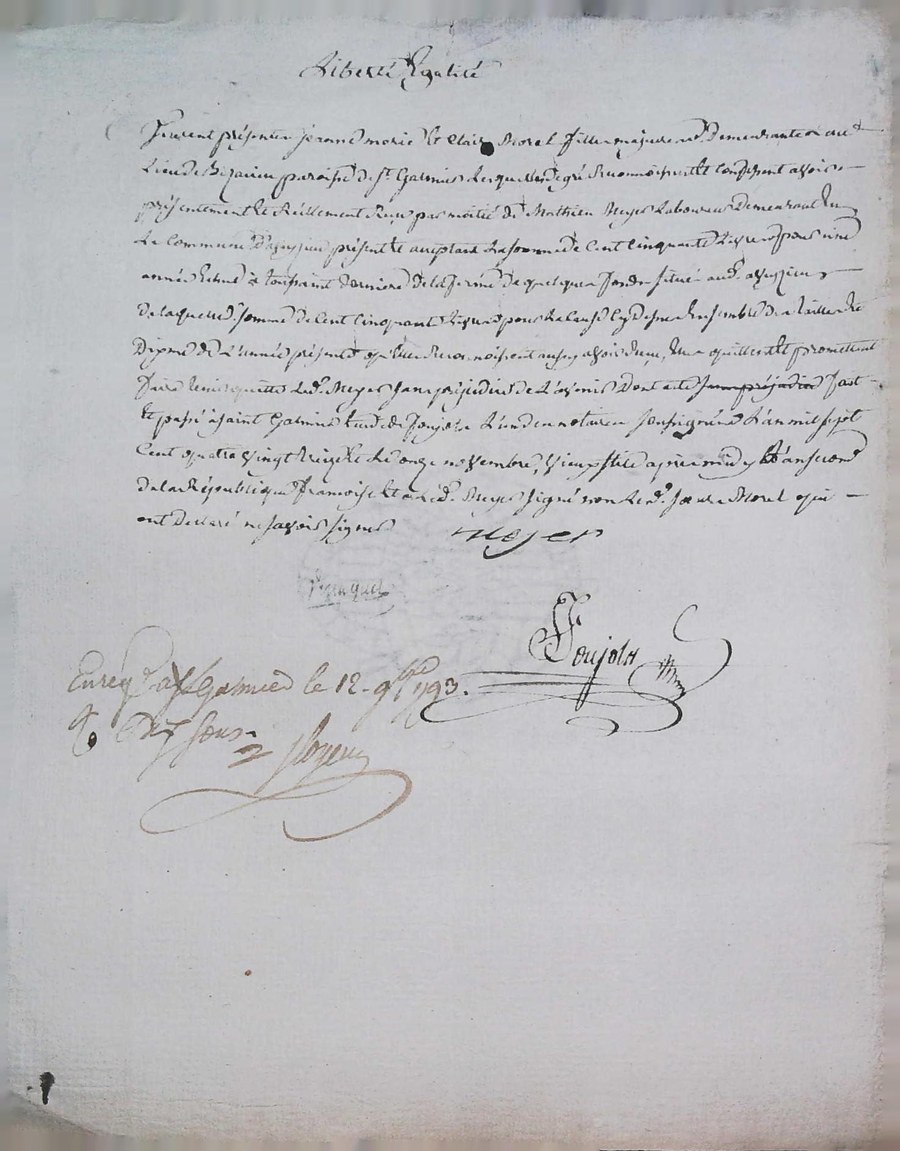 Liberté Egalité
furent présentes jeanne marie et claire Morel filles majeures demeurantes au
Lieu de paroisse de St Galmier Lesquelles de gré Reconnoissent et confessent avoir
présentement et Réellement Reçu par moitié de Mathieu Meyer Laboureur Demeurant En
La Commune D'aveyzieu présent et acceptant La somme de Cent Cinquante Livres pour une
année Echue à toussaint Derniere de la ferme de quelques fonds situés aud. aveyzieu
de laquelle d. somme de Cent Cinquante Livres pour La cause cy Dessus Ensemble de la taille et
Dixme de L'année présente qu'elles Reconnoissent aussy avoir Reçu, En quittent et promettent
faire tenir quitte Led. Meyer sans préjudice de L'avenir Dont acte sans préjudice fait
et passé à saint Galmier Etude de Ponjolx L'un des notaires soussignés L'an mil sept
Cent quatre vingt treize Le onze novembre, vieux stile après midy Et L'an second
de la République françoise Et a Led. Meyer signé non Led. Morel qui
ont Declaré ne savoir signer
Meyer
Ponjolx
Enreg. à St Galmier le 12. 9bre 1793.
R. Dix sous